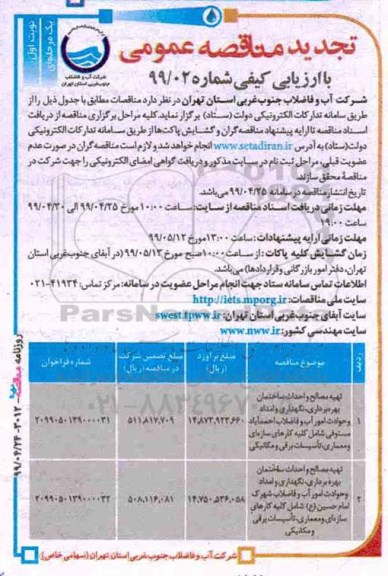 نوبت اول
یک مرحله‌ای
شرکت آب و فاضلاب
جنوب‌غربی استان تهران
تجدید مناقصه عمومی
با ارزیابی کیفی شماره ۹۹/۰۲
شرکت آب و فاضلاب جنوب غربی استان تهران در نظر دارد مناقصات مطابق با جدول ذیل را از
طریق سامانه تدارکات الکترونیکی دولت (ستاد) برگزار نماید. کلیه مراحل برگزاری مناقصه از دریافت
اسناد مناقصه تا ارایه پیشنهاد مناقصه گران و گشایش پاکت‌ها از طریق سامانه تدارکات الکترونیکی
دولت(ستاد) به آدرس www.setadiran.ir انجام خواهد شد و لازم است مناقصه گران در صورت عدم
عضویت قبلی، مراحل ثبت نام در سایت مذکور و دریافت گواهی امضای الکترونیکی را جهت شرکت در
مناقصه محقق سازند.
تاریخ انتشار مناقصه در سامانه ۹۹/۰۴/۲۵ می‌باشد.
مهلت زمانی دریافت اسناد مناقصه از سایت: ساعت ۱۰:۰۰ مورخ ۹۹/۰۴/۲۵ الی ۹۹/۰۴/۳۰
ساعت ۱۹:۰۰
مهلت زمانی ارایه پیشنهادات: ساعت ۱۳:۰۰ مورخ ۹۹/۰۵/۱۲
زمان گشایش کلیه پاکات: از ساعت ۱۰:۰۰ صبح مورخ ۹۹/۰۵/۱۳ (در آبفای جنوب‌غربی استان
تهران، دفتر امور بازرگانی و قراردادها) می‌باشد.
اطلاعات تماس سامانه ستاد جهت انجام مراحل عضویت در سامانه: مرکز تماس: ۴۱۹۳۴-۰۲۱
سایت ملی مناقصات: http://iets.mporg.ir
سایت آبفای جنوب غربی استان تهران: swest.tpww.ir
سایت مهندسی کشور: www.nww.ir
ردیف موضوع مناقصه مبلغ برآورد (ریال) مبلغ تضمین شرکت در مناقصه (ریال) شماره فراخوان
۱ تهیه مصالح و احداث ساختمان
بهره‌برداری، نگهداری و امداد
و حوادث امور آب و فاضلاب احمدآباد
مستوفی شامل کلیه کارهای سازه‌ای
و معماری، تأسیسات برقی و مکانیکی
۱۴,۸۷۳,۹۲۳,۶۶۰ ۵۱۱,۸۱۷,۷۰۹ ۲۰۹۹۰۵۰۱۳۹۰۰۰۰۳۱
۲ تهیه مصالح و احداث ساختمان
بهره برداری، نگهداری و امداد
و حوادث امور آب و فاضلاب شهرک
امام حسین (ع) شامل کلیه کارهای
سازه‌ای و معماری، تأسیسات برقی
و مکانیکی
۱۴,۷۵۰,۵۳۶,۰۵۸ ۵۰۸,۱۱۶,۰۸۱ ۲۰۹۹۰۵۰۱۳۹۰۰۰۰۳۲
شرکت آب و فاضلاب جنوب غربی استان تهران (سهامی خاص)
روزنامه مناقصه - ۳۰۱۲ - ۹۹/۰۴/۲۴
ParsNamad
۰۲۱-۸۸۳۴۹۶۷۰